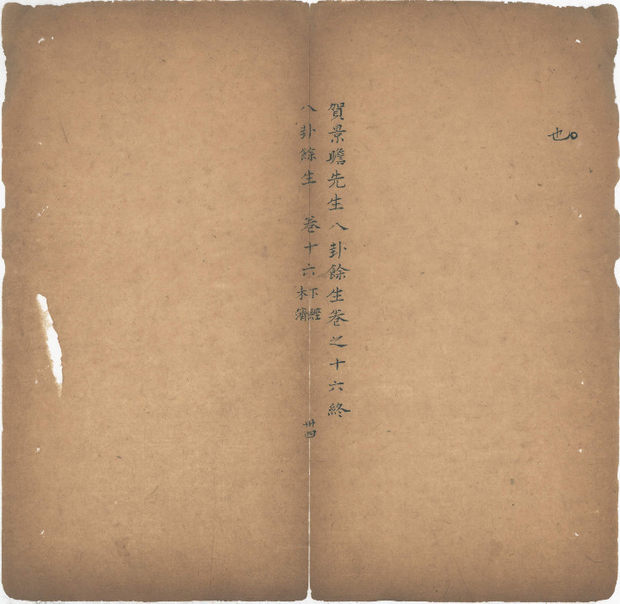 也。
賀景瞻先生八卦餘生卷之十六終
八卦餘生 卷十六 下經 未濟
卅四